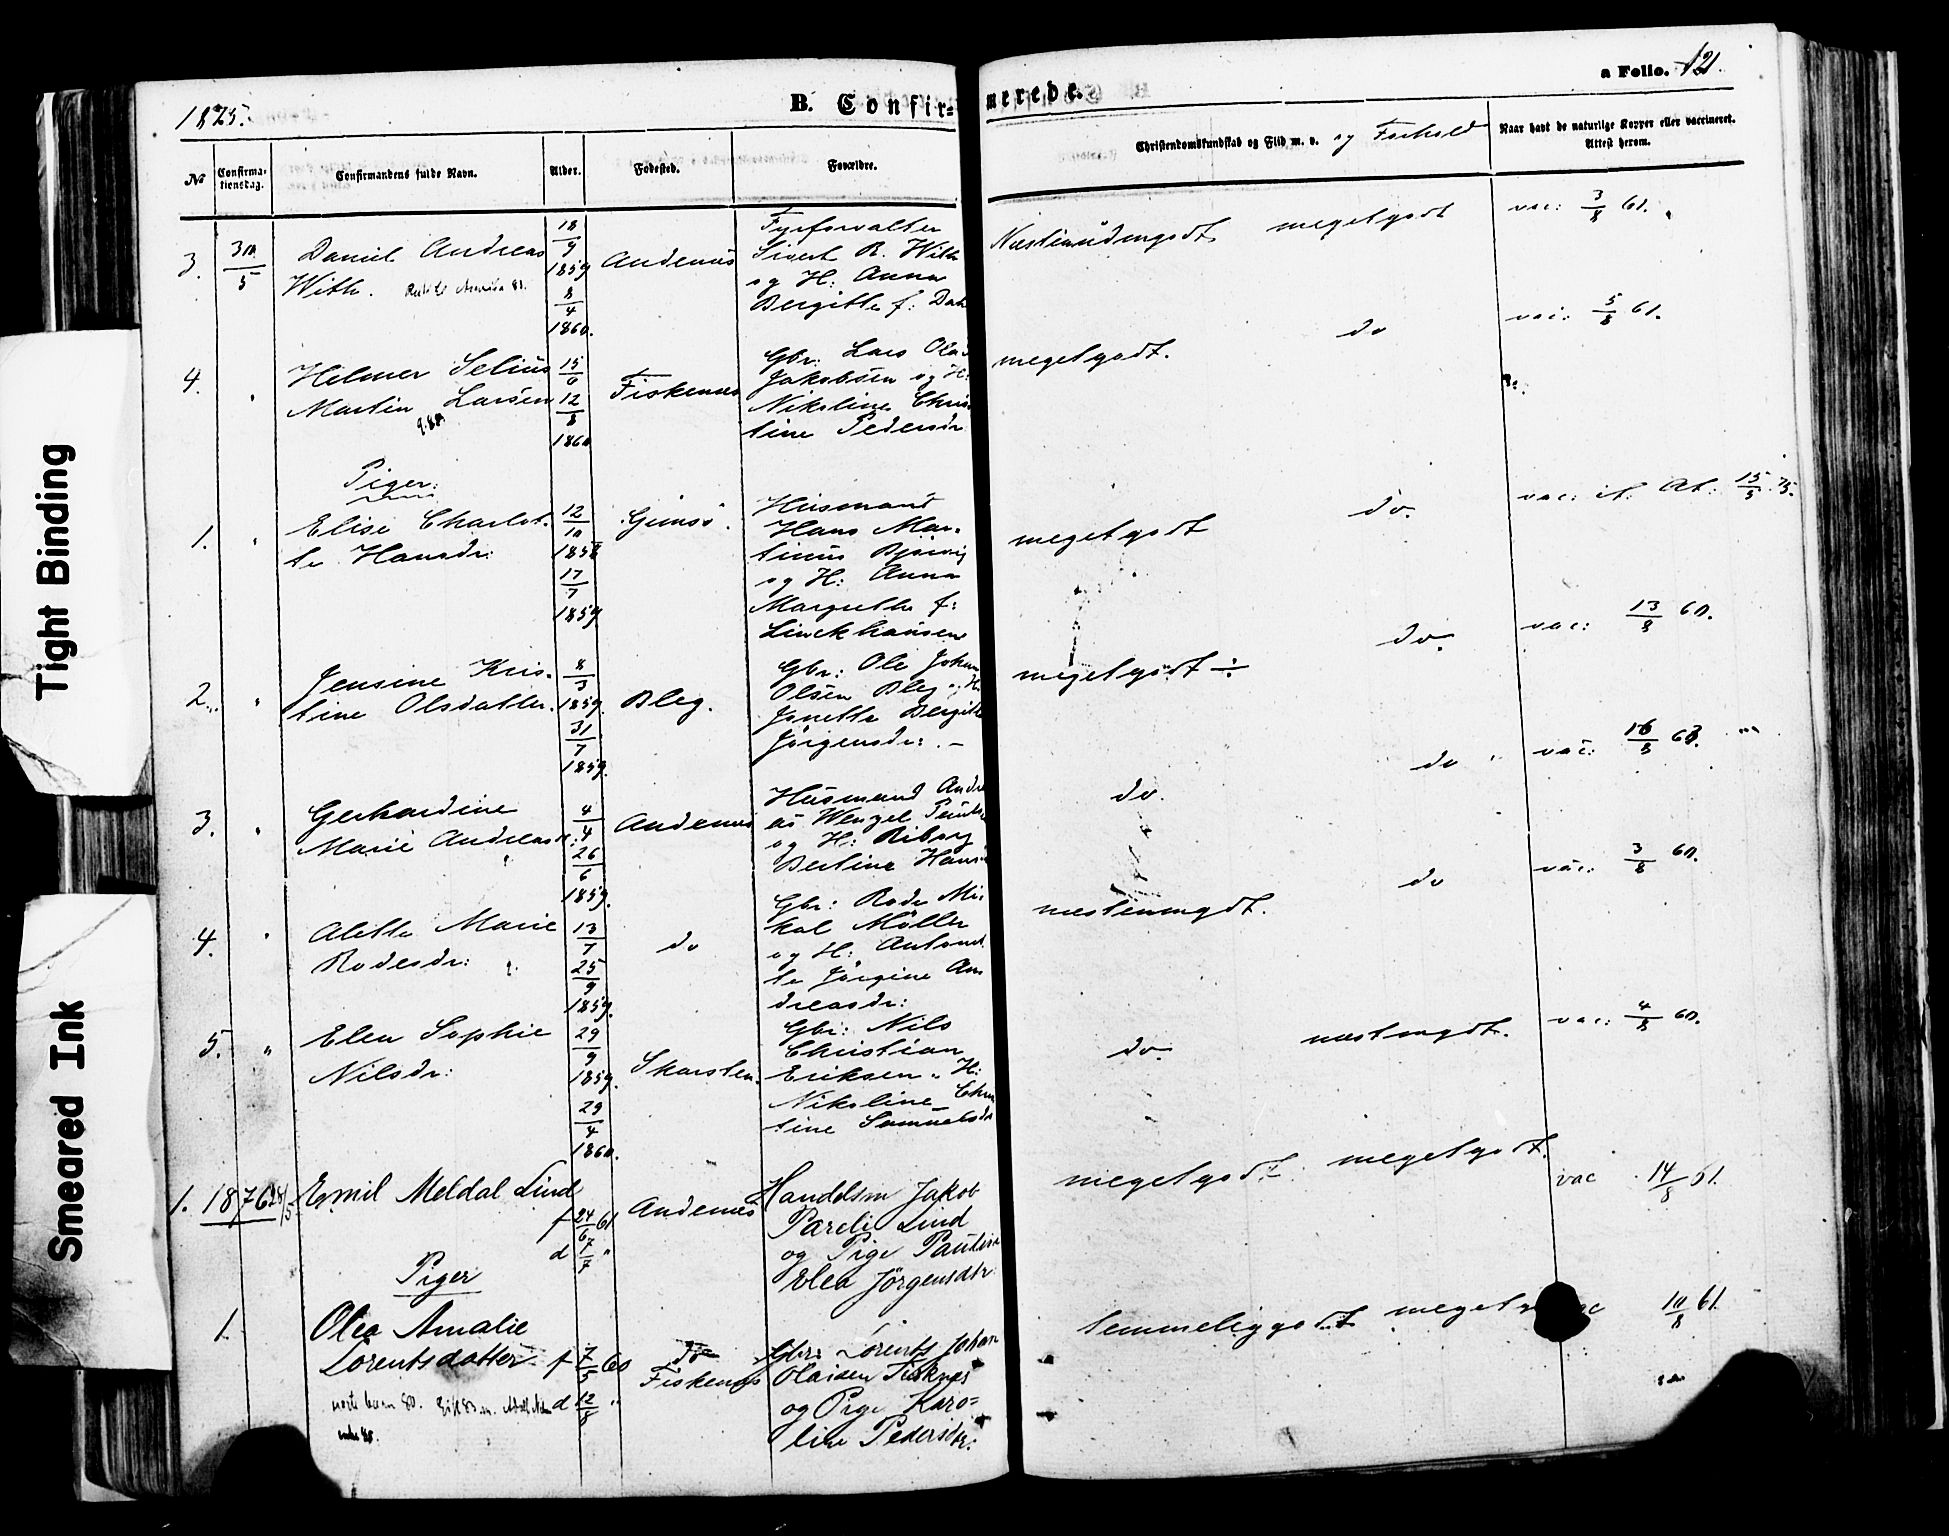 Tight Binding
Smeared Ink
1875.
B. Confir=
merede.
a Folio. 121.
No
Confirma-
tionsdag.
Confirmandens fulde Navn.
Alder.
Fødested.
Forældre.
Christendomskundskab og Flid m. v. og Forhold
Naar havt de naturlige Kopper eller vaccineret.
Attest herom.
3. 30/5 Daniel Andreas
With.
18/9 1859
8/4 1860.
Andenæs
Fyrforvalter
Sivert B. With
og H: Anna
Bergitte f: Dah
meget godt
vac: 3/8 61.
4. " Helmer Selius
Martin Larsen
15/6
12/8 1860
Fiskenæs
Gbr: Lars Olai
Jakobsen og H:
Nikoline Chris
tine Pedersdr
meget godt.
do
vac: 5/8 61.
Piger:
1. " Elise Charlot-
te Hansdr:
12/10 1858
17/7 1859
Gimsø.
Husmand
Hans Mar-
tinus
og H: Anna
Margrethe f:
Linckhausen
meget godt
do.
vac: At: 15/5 75.
2. " Jensine Kris-
tine Olsdatter.
8/3 1859.
31/7 1859.
Bleg.
Gbr: Ole Johan
Olsen Bleg og H:
Jonette Bergitte
Jörgensdr: -
meget godt ÷
do.
vac: 13/8 60.
3. " Gerhardine
Marie Andreas
4/4
26/6 1859.
Andenæs
Husmand Andre
as Wengel
og H: Riborg
Bertine Hans
do.
do
vac: 16/8
4. " Alette Marie
Rodesdr:
13/7
25/9 1859.
do
Gbr: Rode Mi-
kal Möller
og H: Antonet
te Jörgine An
dreasdr:
do
vac: 3/8 60.
5. " Elen Sophie
Nilsdr:
29/9 1859.
29/4 1860.
Skarsten.
Gbr: Nils
Christian
Eriksen " H:
Nikoline Chris
tine Samuelsdr
do.
vac: 4/8 60.
1. 1876 28/5 Emil Meldal Lind
f 24/6 61
d 7/7 "
Andenæs
Handelsm Jakob
Pareli Lind
og Pige Pauline
Elea Jörgensdtr
meget godt
meget godt.
vac 14/8 61.
Piger
1. Olea Amalie
Lorentsdatter
f 7/5 60
d 12/8 "
do
Fiskenæs
Gbr: Lorents Johan
Olaisen Fisknæs
og Pige Karo=
line Pedersdtr:
temmelig godt
meget
10/8 61.